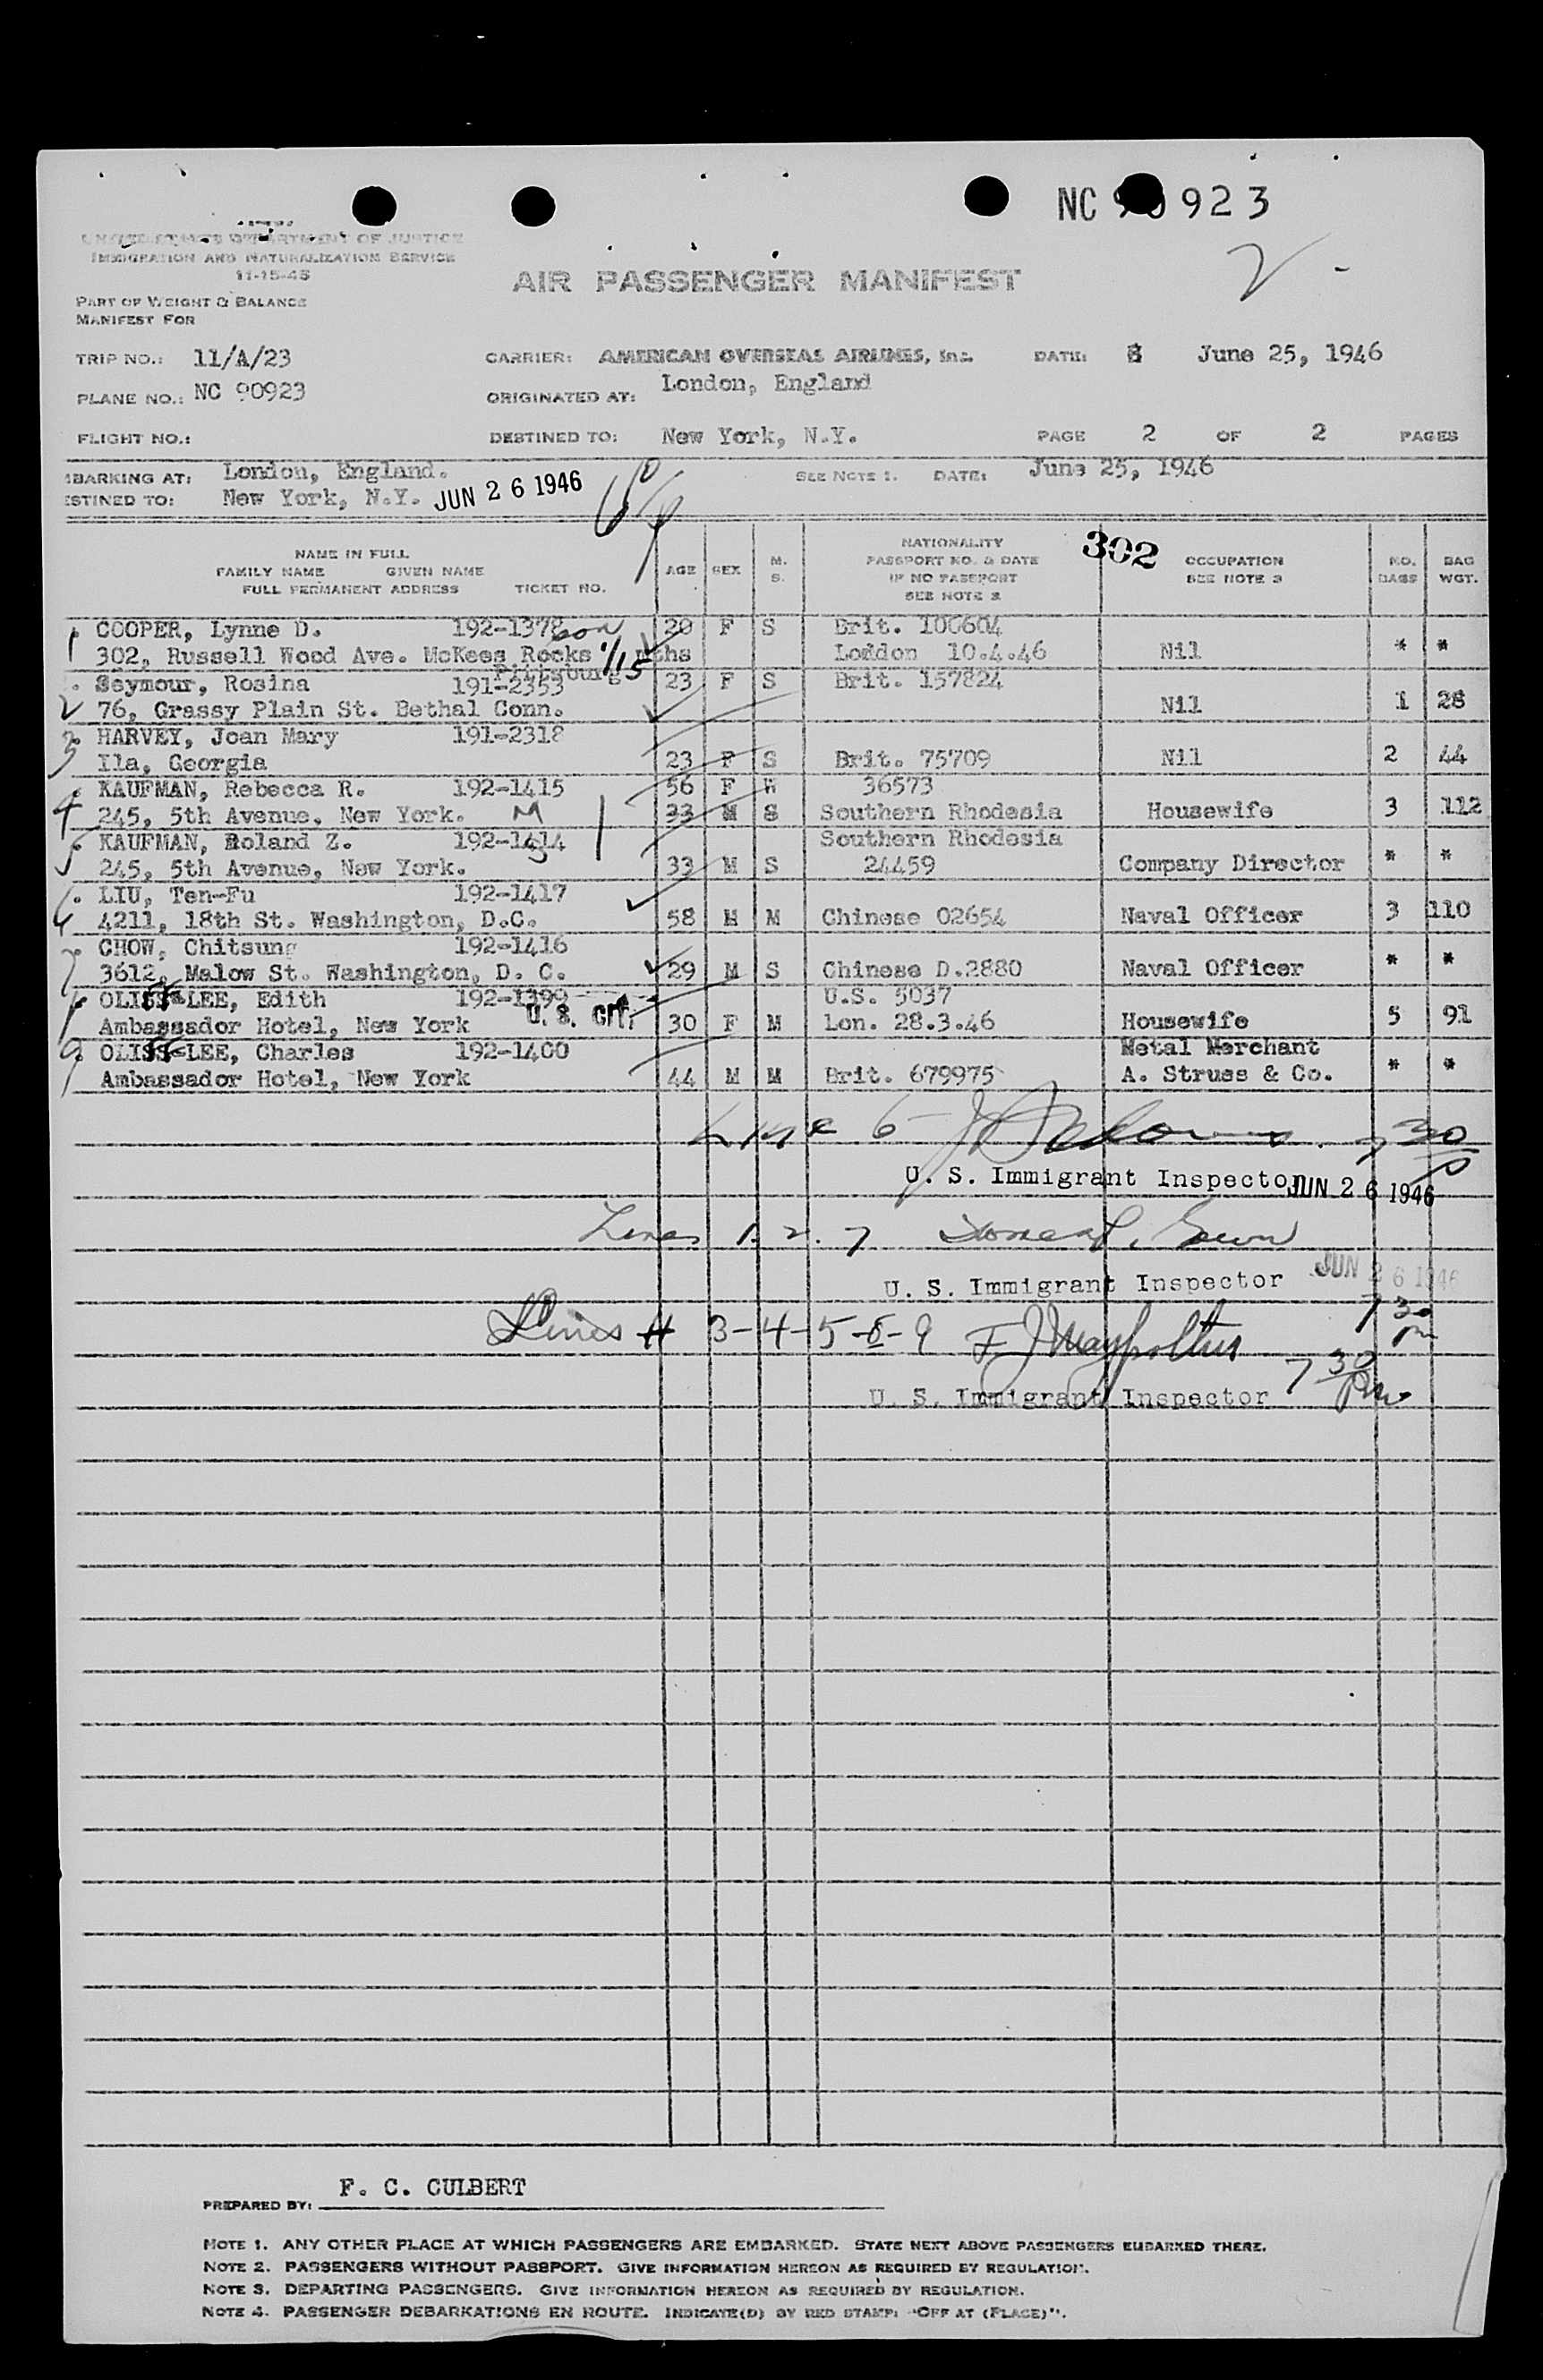 NC 90923
UNITED STATES DEPARTMENT OF JUSTICE
IMMIGRATION AND NATURALIZATION SERVICE
11-15-45
AIR PASSENGER MANIFEST
2 -
PART OF WEIGHT & BALANCE
MANIFEST FOR
TRIP NO.: 11/A/23 CARRIER: AMERICAN OVERSEAS AIRLINES, Inc. DATE: June 25, 1946
PLANE NO.: NC 90923 ORIGINATED AT: London, England
FLIGHT NO.: DESTINED TO: New York, N.Y. PAGE 2 OF 2 PAGES
MBARKING AT: London, England. SEE NOTE 1. DATE: June 25, 1946
ESTINED TO: New York, N.Y. JUN 26 1946
NAME IN FULL
FAMILY NAME GIVEN NAME
FULL PERMANENT ADDRESS TICKET NO. AGE SEX M. S. NATIONALITY PASSPORT NO. & DATE IF NO PASSPORT SEE NOTE 2 302 OCCUPATION SEE NOTE 3 NO. BAGS BAG WGT.
1 COOPER, Lynne D. 192-1378 son 20 F S Brit. 100604
302, Russell Wood Ave. McKees Rocks 1/15 mths London 10.4.46 Nil * *
Pittsburg
2 Seymour, Rosina 191-2353 23 F S Brit. 157824
76, Grassy Plain St. Bethal Conn. Nil 1 28
3 HARVEY, Joan Mary 191-2318
Ila, Georgia 23 F S Brit. 75709 Nil 2 44
4 KAUFMAN, Rebecca R. 192-1415 56 F W 36573
245, 5th Avenue, New York. M 33 M S Southern Rhodesia Housewife 3 112
5 KAUFMAN, Roland Z. 192-1414 Southern Rhodesia
245, 5th Avenue, New York. 33 M S 24459 Company Director * *
6 LIU, Ten-Fu 192-1417
4211, 18th St. Washington, D.C. 58 M M Chinese 02654 Naval Officer 3 110
7 CHOW, Chitsung 192-1416
3612, Malow St. Washington, D. C. 29 M S Chinese D.2880 Naval Officer * *
OLIFF-LEE, Edith 192-1399 U.S. 5037
Ambassador Hotel, New York U. S. CIT. 30 F M Lon. 28.3.46 Housewife 5 91
9 OLIFF-LEE, Charles 192-1400 Metal Merchant
Ambassador Hotel, New York 44 M M Brit. 679975 A. Struss & Co. * *
Line 6 7 30 p
U. S. Immigrant Inspector JUN 26 1946
Lines 1. 2. 7
U. S. Immigrant Inspector JUN 26 1946
7 30 pm
Lines 3-4-5-8-9
U. S. Immigrant Inspector 7 30 pm
F. C. CULBERT
PREPARED BY:
NOTE 1. ANY OTHER PLACE AT WHICH PASSENGERS ARE EMBARKED. STATE NEXT ABOVE PASSENGERS EMBARKED THERE.
NOTE 2. PASSENGERS WITHOUT PASSPORT. GIVE INFORMATION HEREON AS REQUIRED BY REGULATION.
NOTE 3. DEPARTING PASSENGERS. GIVE INFORMATION HEREON AS REQUIRED BY REGULATION.
NOTE 4. PASSENGER DEBARKATIONS EN ROUTE. INDICATE(D) BY RED STAMP: "OFF AT (PLACE)".